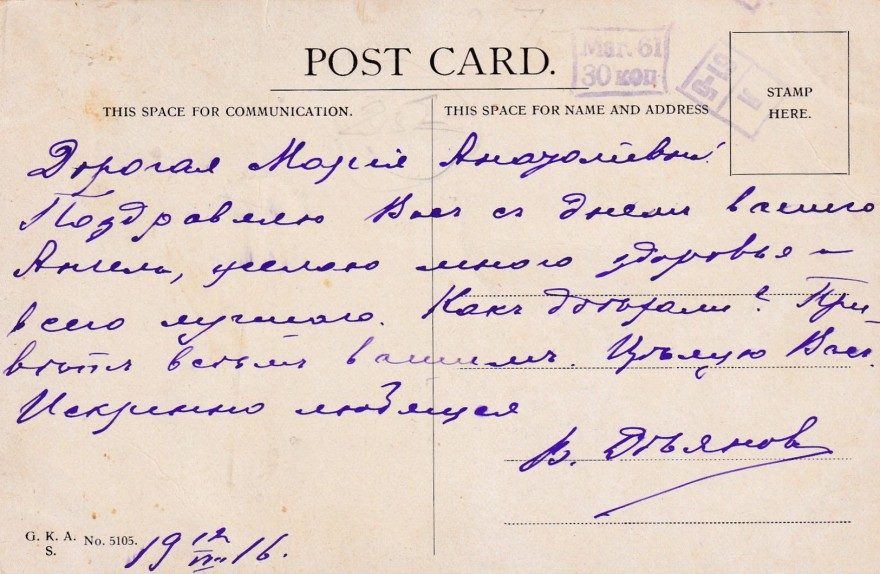 POST CARD.
Маг. 61
30 коп
THIS SPACE FOR COMMUNICATION.
THIS SPACE FOR NAME AND ADDRESS
STAMP
HERE.
Дорогая Марія Анатоліевна!
Поздравляю Васъ съ днемъ вашего
Ангела, желаю много здоровья и
всего лучшаго. Какъ доѣхали? При
вѣтъ всѣмъ вашимъ. Цѣлую Васъ.
Искренно любящая
В. Дьянов
G. K. A.
S.
No. 5105.
19 12/VII 16.